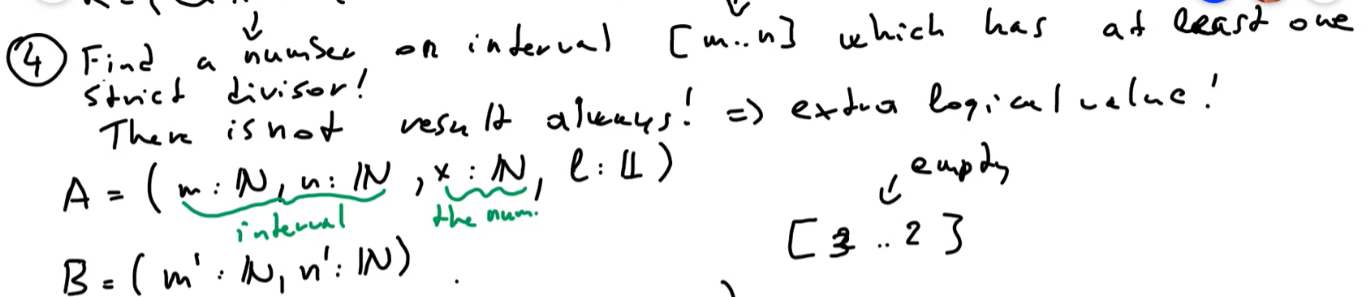 ④ Find a number on interval [m..n] which has at least one
strict divisor!
There is not result always! => extra logical value!
A = (m:ℕ, n:ℕ, x:ℕ, l:𝕃)
interval the num.
empty
[3..2]
B = (m':ℕ, n':ℕ)